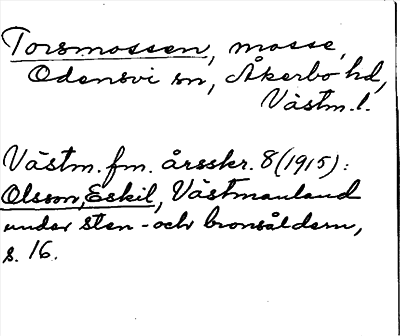 Torsmossen, mosse,
Odensvi sn, Åkerbo hd,
Västm. l.
Västm. fm. årsskr. 8 (1915):
Olsson, Eskil, Västmanland
under sten- och bronsåldern,
s. 16.